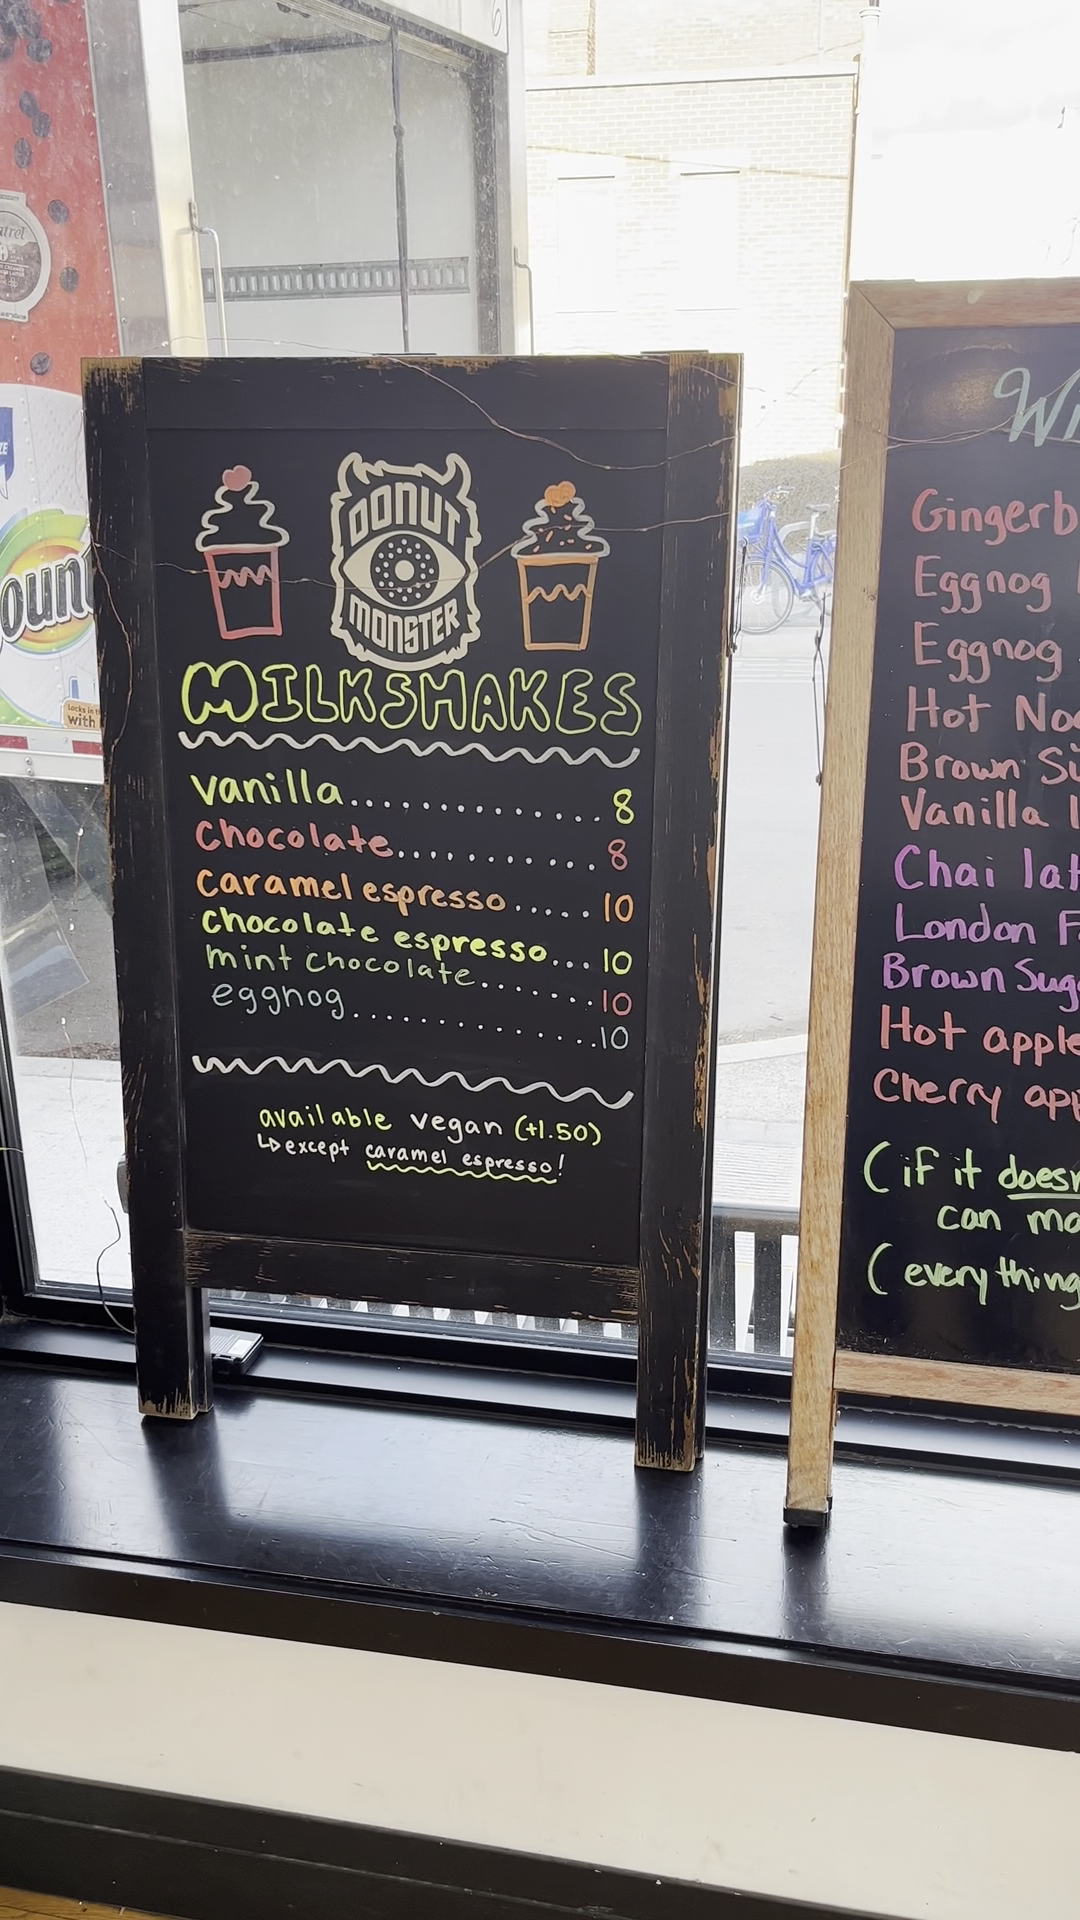 DONUT
MONSTER
MILKSHAKES
vanilla.............. 8
Chocolate............ 8
Caramel espresso..... 10
chocolate espresso... 10
mint chocolate....... 10
eggnog............... 10
available vegan (+1.50)
↳ except caramel espresso!
Gingerb
Eggnog
Eggnog
Hot
Brown
Vanilla
Chai lat
London F
Brown Sug
Hot apple
Cherry app
(if it doesn
can
(everything
with